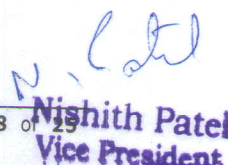 N. Patel
8 of 25
Nishith Patel
Vice President